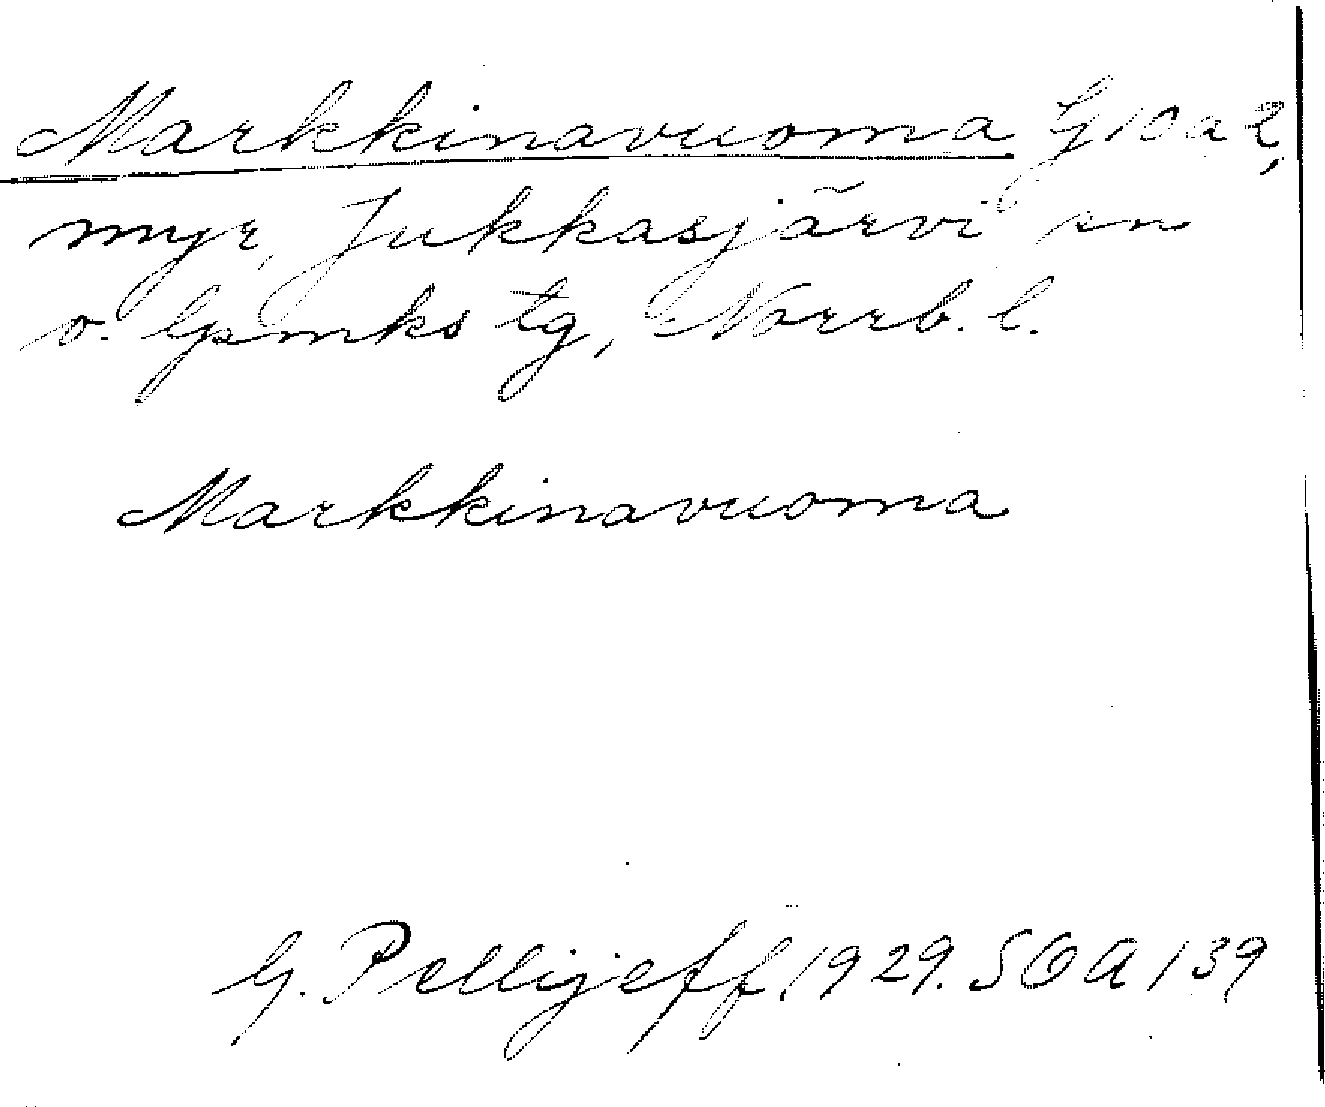 Markkinavuoma G 10 a 2,
myr, Jukkasjärvi sn
o. lpmks tg, Norrb. l.
Markkinavuoma
G. Pellijeff, 1929. SOA 139